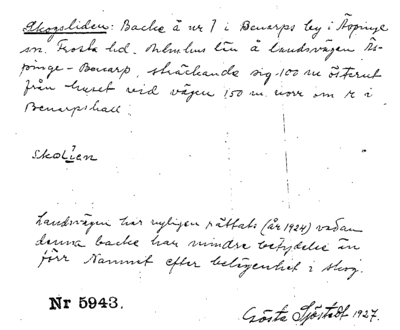 Skogsliden: Backe å nr 7 i Benarps by i Äspinge
sn. Frosta hd. Malmöhus län å landsvägen Äs-
pinge - Benarp, sträckande sig 100 m österut
från huset vid vägen 150 m norr om r i
Benarpshall.
skolien
Landsvägen har nyligen rättats (år 1924) vadan
denna backe har mindre betydelse än
förr Namnet efter belägenhet i skog.
Nr 5943.
Gösta Sjöstedt 1927.